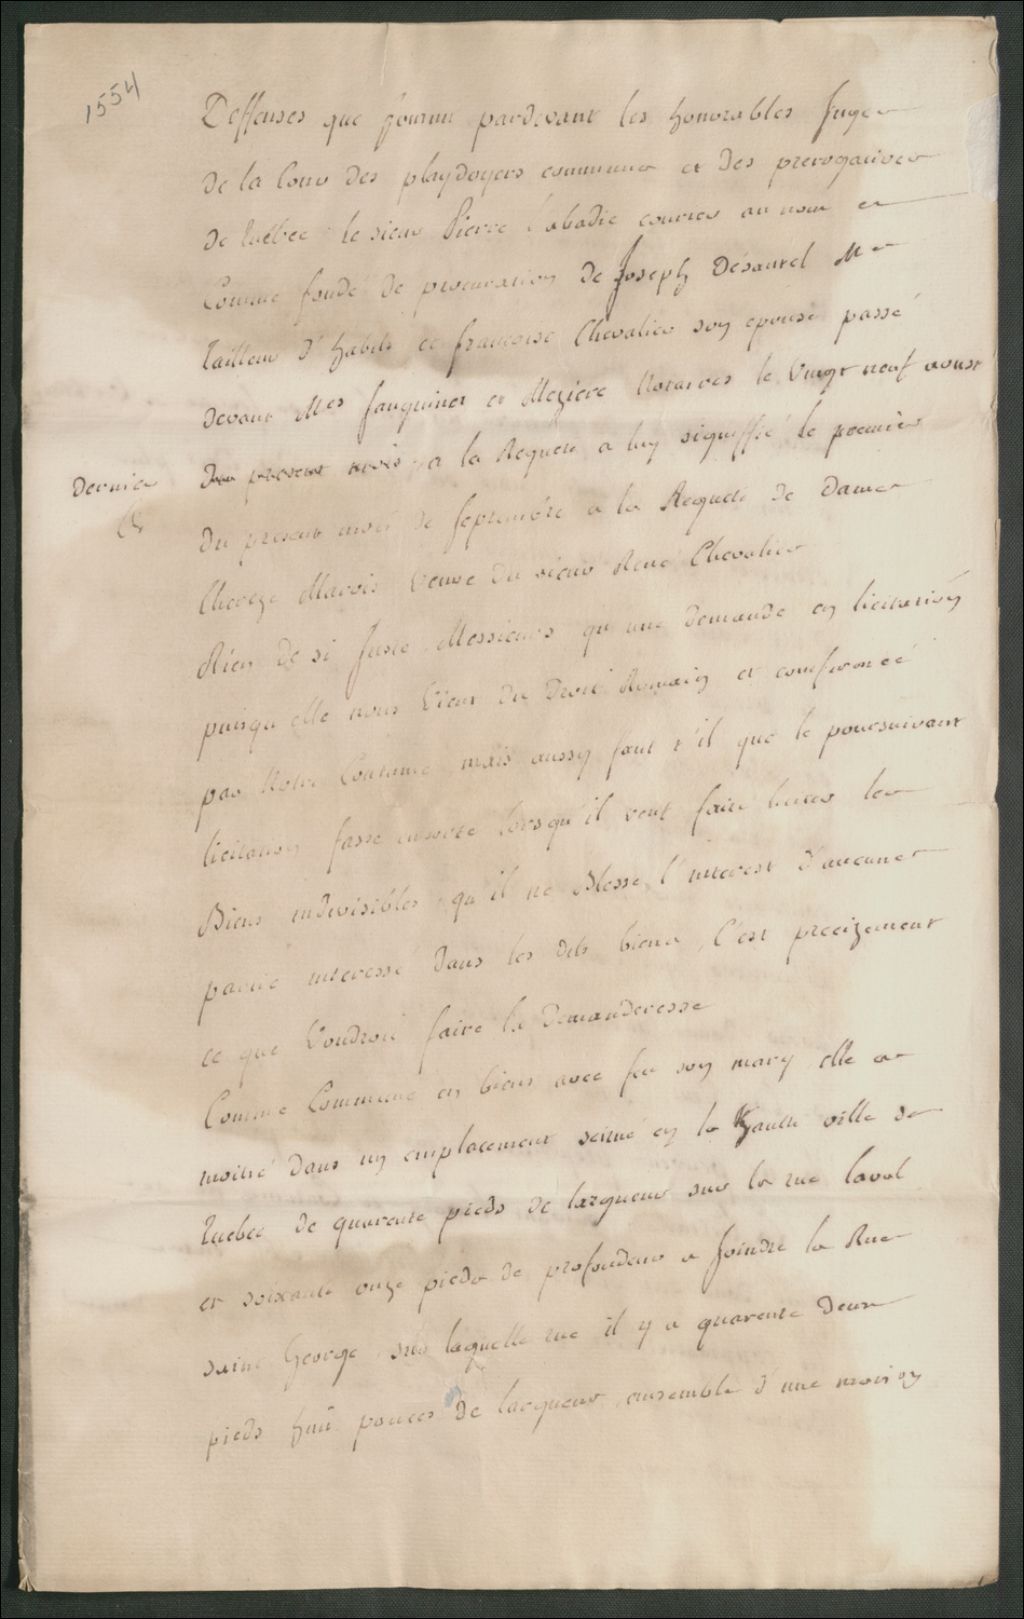 1554
Deffenses que fournit pardevant les honorables Juges
de la Cour des playdoyers communes et des prerogatives
de Quebec le sieur Pierre Labadie courier au nom et
Comme fondé de procuration de Joseph Désautel Me
Tailleur d'habits et francoise Chevalier son epouse passé
devant Mes Sanguinet et Meziere Notaires le Vingt neuf aoust
dernier
du present mois, a la Requete a luy signiffié le premier
du present mois de septembre a la Requete de dame
Thereze Marois Veuve du sieur René Chevalier
Rien de si Juste, Messieurs qu'une demande en licitation
puisqu elle nous Vient du Droit Romain et confirmée
par Notre Coutume, mais aussy faut t'il que le poursuivant
licitation fasse ensorte lorsqu'il veut faire liciter les
Biens indivisibles, qu'il ne Blesse l'interest d'aucune
partie interessé dans les dits biens, C'est precizement
ce que Voudroit faire la Demanderesse
Comme Commune en biens avec feu son mary, elle a
moitié dans un emplacement scitué en la haulte ville de
Quebec de quarente pieds de largueur sur la rue laval
et soixante onze pieds de profondeur a Joindre la Rue
saint George, sur laquelle rue il y a quarente deux
pieds huit pouces de largueur, ensemble d'une maison